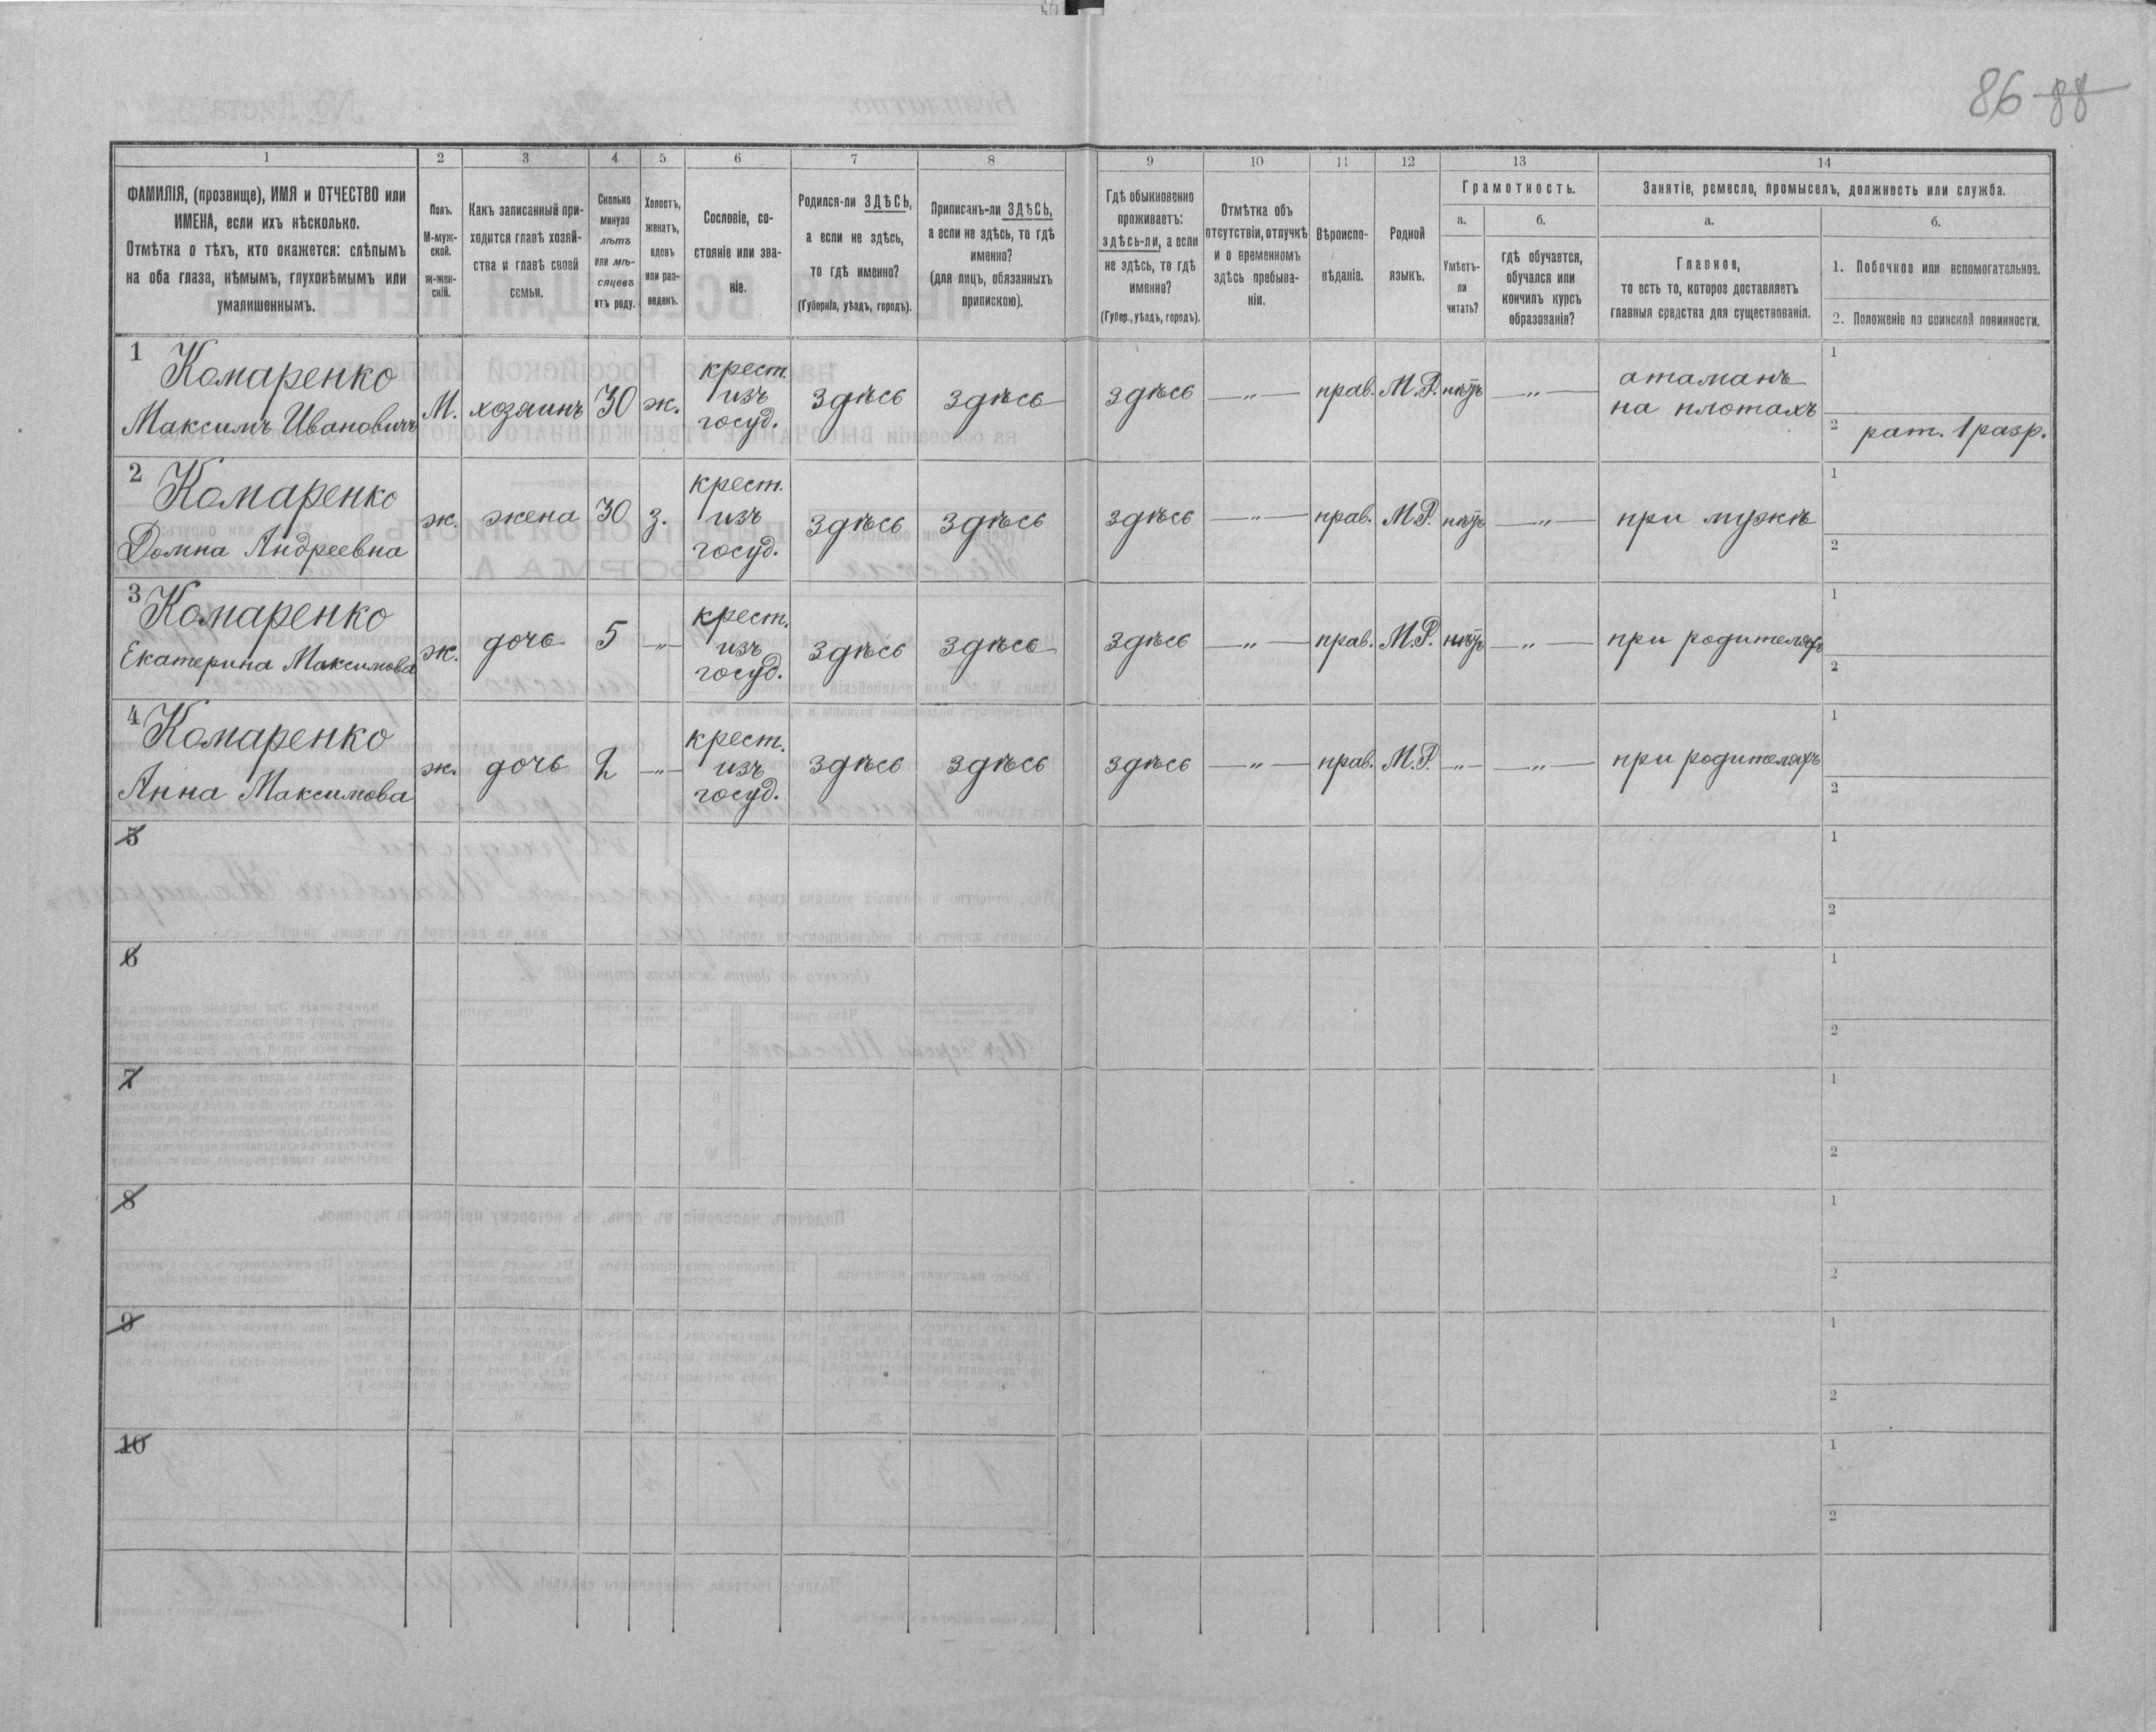 86 88
1 2 3 4 5 6 7 8 9 10 11 12 13 14
ФАМИЛІЯ, (прозвище), ИМЯ и ОТЧЕСТВО или
ИМЕНА, если ихъ нѣсколько.
Отмѣтка о тѣхъ, кто окажется: слѣпымъ
на оба глаза, нѣмымъ, глухонѣмымъ или
умалишеннымъ.
Полъ.
М-муж-
ской.
ж-жен-
скій.
Какъ записанный при-
ходится главѣ хозяй-
ства и главѣ своей
семьи.
Сколько
минуло
лѣтъ
или мѣ-
сяцевъ
отъ роду.
Холостъ,
женатъ,
вдовъ
или раз-
веденъ.
Сословіе, со-
стояніе или зва-
ніе.
Родился-ли ЗДѢСЬ,
а если не здѣсь,
то гдѣ именно?
(Губернія, уѣздъ, городъ).
Приписанъ-ли ЗДѢСЬ,
а если не здѣсь, то гдѣ
именно?
(для лицъ, обязанныхъ
припискою).
Гдѣ обыкновенно
проживаетъ:
здѣсь-ли, а если
не здѣсь, то гдѣ
именно?
(Губер., уѣздъ, городъ).
Отмѣтка объ
отсутствіи, отлучкѣ
и о временномъ
здѣсь пребыва-
ніи.
Вѣроиспо-
вѣданіе.
Родной
языкъ.
Грамотность.
а.
Умѣетъ-
ли
читать?
б.
гдѣ обучается,
обучался или
кончилъ курсъ
образованія?
Занятіе, ремесло, промыселъ, должность или служба.
а.
Главное,
то есть то, которое доставляетъ
главныя средства для существованія.
б.
1. Побочное или вспомогательное.
2. Положеніе по воинской повинности.
1 Комаренко
Максимъ Ивановичъ
М.
хозяинъ
30
ж.
крест.
изъ
госуд.
здѣсь
здѣсь
здѣсь
—„—
прав.
М.Р.
нѣтъ
—„—
атаманъ
на плотахъ
1
2 рат. 1 разр.
2 Комаренко
Домна Андреевна
ж.
жена
30
з.
крест.
изъ
госуд.
здѣсь
здѣсь
здѣсь
—„—
прав.
М.Р.
нѣтъ
—„—
при мужѣ
1
2
3 Комаренко
Екатерина Максимова
ж.
дочь
5
—„—
крест.
изъ
госуд.
здѣсь
здѣсь
здѣсь
—„—
прав.
М.Р.
нѣтъ
—„—
при родителяхъ
1
2
4 Комаренко
Анна Максимова
ж.
дочь
2
—„—
крест.
изъ
госуд.
здѣсь
здѣсь
здѣсь
—„—
прав.
М.Р.
—„—
—„—
при родителяхъ
1
2
5
1
2
6
1
2
7
1
2
8
1
2
9
1
2
10
1
2